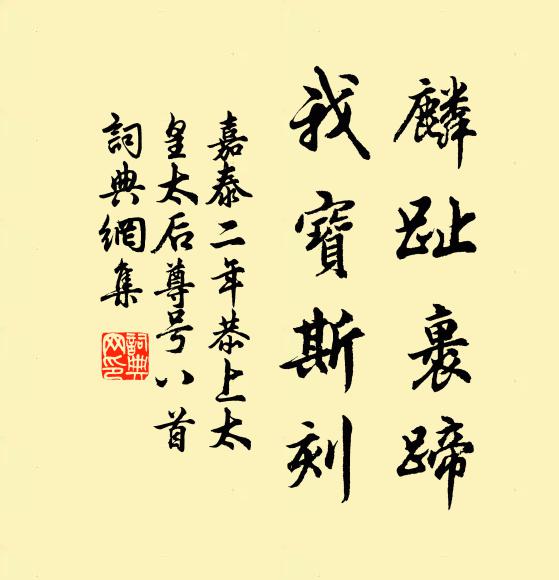 麟趾裹蹄
我寶斯刻
嘉泰二年恭上太
皇太后尊号八首
詞典網集
詞典網印